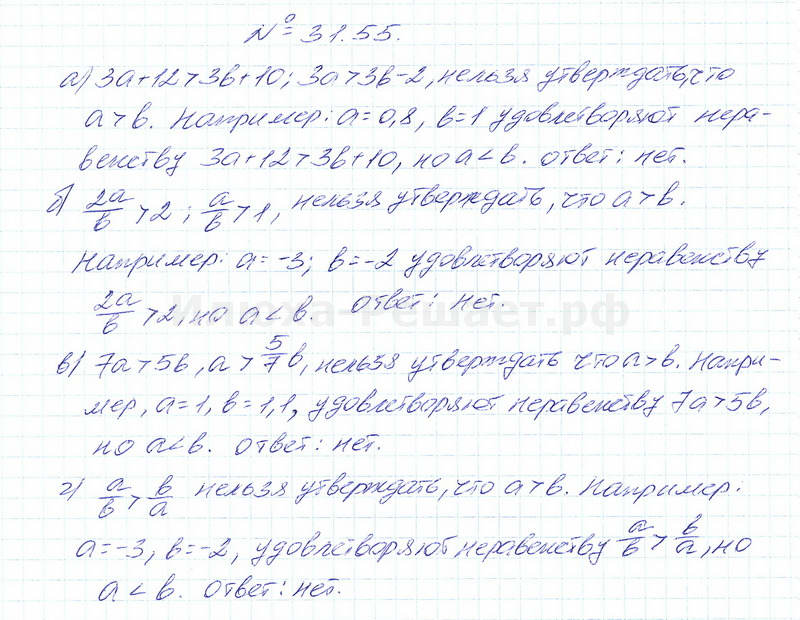 № 31.55.
а) 3a+12>3b+10; 3a>3b-2, нельзя утверждать, что
a>b. Например: a=0,8, b=1 удовлетворяют нера-
венству 3a+12>3b+10, но a<b. ответ: нет.
б) 2a/b >2; a/b >1, нельзя утверждать, что a>b.
Например: a=-3; b=-2 удовлетворяют неравенству
2a/b >2, но a<b. ответ: нет.
Илюха-Решает.рф
в) 7a>5b, a> 5/7 b, нельзя утверждать что a>b. Напри-
мер, a=1, b=1,1, удовлетворяют неравенству 7a>5b,
но a<b. ответ: нет.
г) a/b > b/a нельзя утверждать, что a>b. Например:
a=-3, b=-2, удовлетворяют неравенству a/b > b/a, но
a<b. ответ: нет.